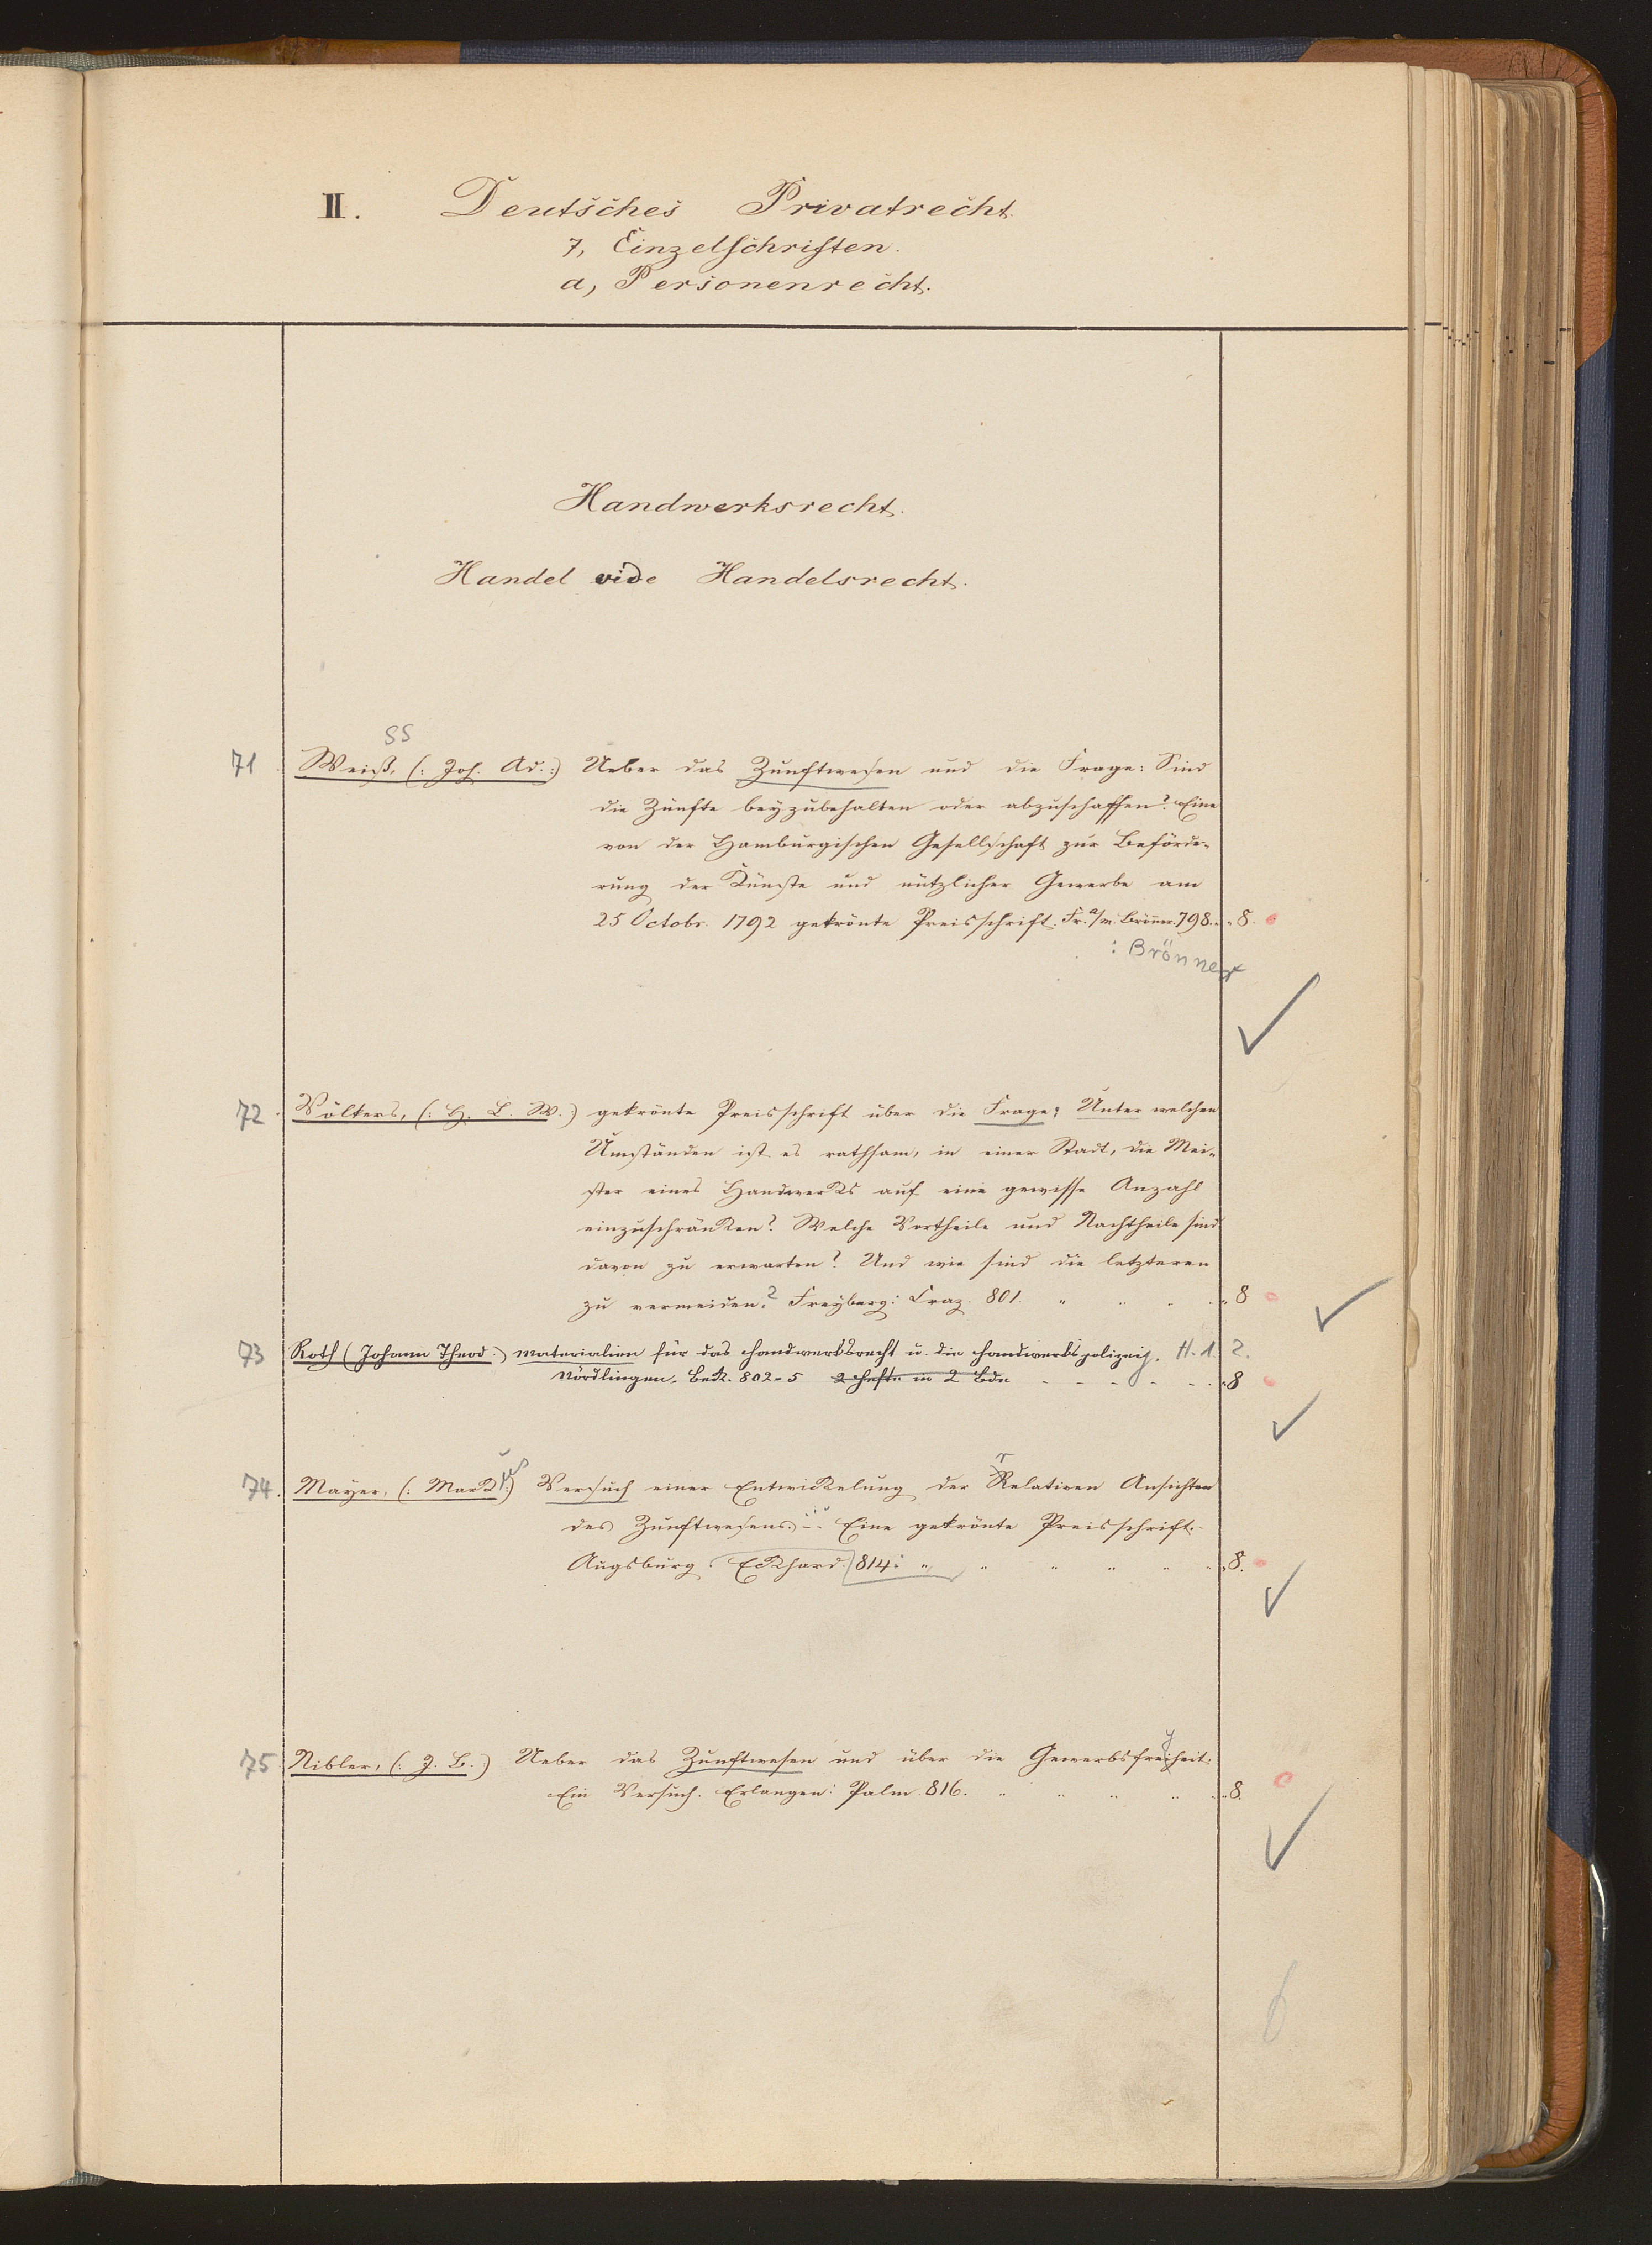 II. Deutsches Privatrecht.
7, Einzelschriften.
a, Personenrecht.
Handwerksrecht.
Handel vide Handelsrecht.
ss
71 Weiß, (: Joh. Ad. :) Ueber das Zunftwesen und die Frage: Sind
die Zünfte beyzubehalten oder abzuschaffen? Eine
von der Hamburgischen Gesellschaft zur Beförde-
rung der Künste und nützlicher Gewerbe am
25 Octobr. 1792 gekrönte Preisschrift. Fr. a/m. Brönner. 798. „ 8.
: Brönner
72 Völkers, (: H. L. W. :) gekrönte Preisschrift über die Frage: Unter welchen
Umständen ist es rathsam, in einer Stadt, die Mei-
ster eines Handwerks auf eine gewisse Anzahl
einzuschränken? Welche Vortheile und Nachtheile sind
davon zu erwarten? Und wie sind die letzteren
zu vermeiden? Freyberg: Craz. 801. „ „ „ „ 8
73 Roth (Johann Theod:) Materialien für das Handwerksrecht u. die Handwerkspolizey. H. 1. 2.
Nördlingen. Beck. 802-5 2 Hefte in 2 Bde - - - - - - „8
74. Mayer, (: Mark :) us Versuch einer Entwickelung der r Relativen Ansichten
des Zunftwesens. Eine gekrönte Preisschrift.
Augsburg. Eckhard. 814. „ „ „ „ „ „ 8.
75 Nibler, (: J. B. :) Ueber das Zunftwesen und über die Gewerbsfreiheit. y
Ein Versuch. Erlangen: Palm 816. „ „ „ „ „ 8.
6